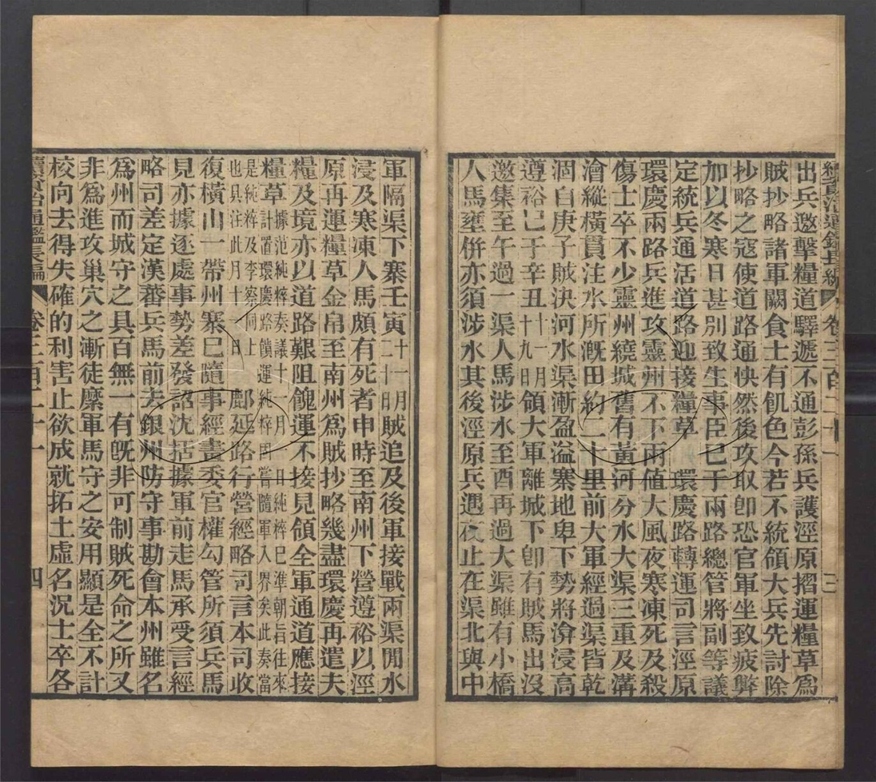 續資治通鑑長編 卷三百二十一 三
出兵邀擊糧道驛遞不通彭孫兵護涇原摺運糧草爲
賊抄略諸軍闕食士有飢色今若不統領大兵先討除
抄略之寇使道路通快然後攻取卽恐官軍坐致疲弊
加以冬寒日甚别致生事臣已于兩路總管將副等議
定統兵通活道路迎接糧草 環慶路轉運司言涇原
環慶兩路兵進攻靈州不下兩値大風夜寒凍死及殺
傷士卒不少靈州繞城舊有黃河分水大渠三重及溝
澮縱橫貫注水所漑田約二十里前大軍經過渠皆乾
涸自庚子賊決河水渠漸盈溢寨地卑下勢將渰浸高
遵裕已于辛丑十一月十九日領大軍離城下卽有賊馬出沒
邀集至午過一渠人馬涉水至酉再過大渠雖有小橋
人馬壅併亦須涉水其後涇原兵遇夜止在渠北與中
軍隔渠下寨壬寅十一月二十日賊追及後軍接戰兩渠閒水
浸及寒凍人馬頗有死者申時至南州下營遵裕以涇
原再運糧草金帛至南州爲賊抄略幾盡環慶再遣夫
糧及境亦以道路艱阻餽運不接見領全軍通道應接
糧草據范純粹奏議十一月一日純粹已准朝旨往來計置環慶路饋運純粹因嘗隨軍入界矣此奏當是純粹及李察同上也具注此月十一日 鄜延路行營經略司言本司收
復橫山一帶州寨已隨事經畫委官權勾管所須兵馬
見亦據逐處事勢差發詔沈括據軍前走馬承受言經
略司差定漢蕃兵馬前去銀州防守事勘會本州雖名
爲州而城守之具百無一有旣非可制賊死命之所又
非爲進攻巢穴之漸徒縻軍馬守之安用顯是全不計
校向去得失確的利害止欲成就拓土虛名況士卒各
續資治通鑑長編 卷三百二十一 四